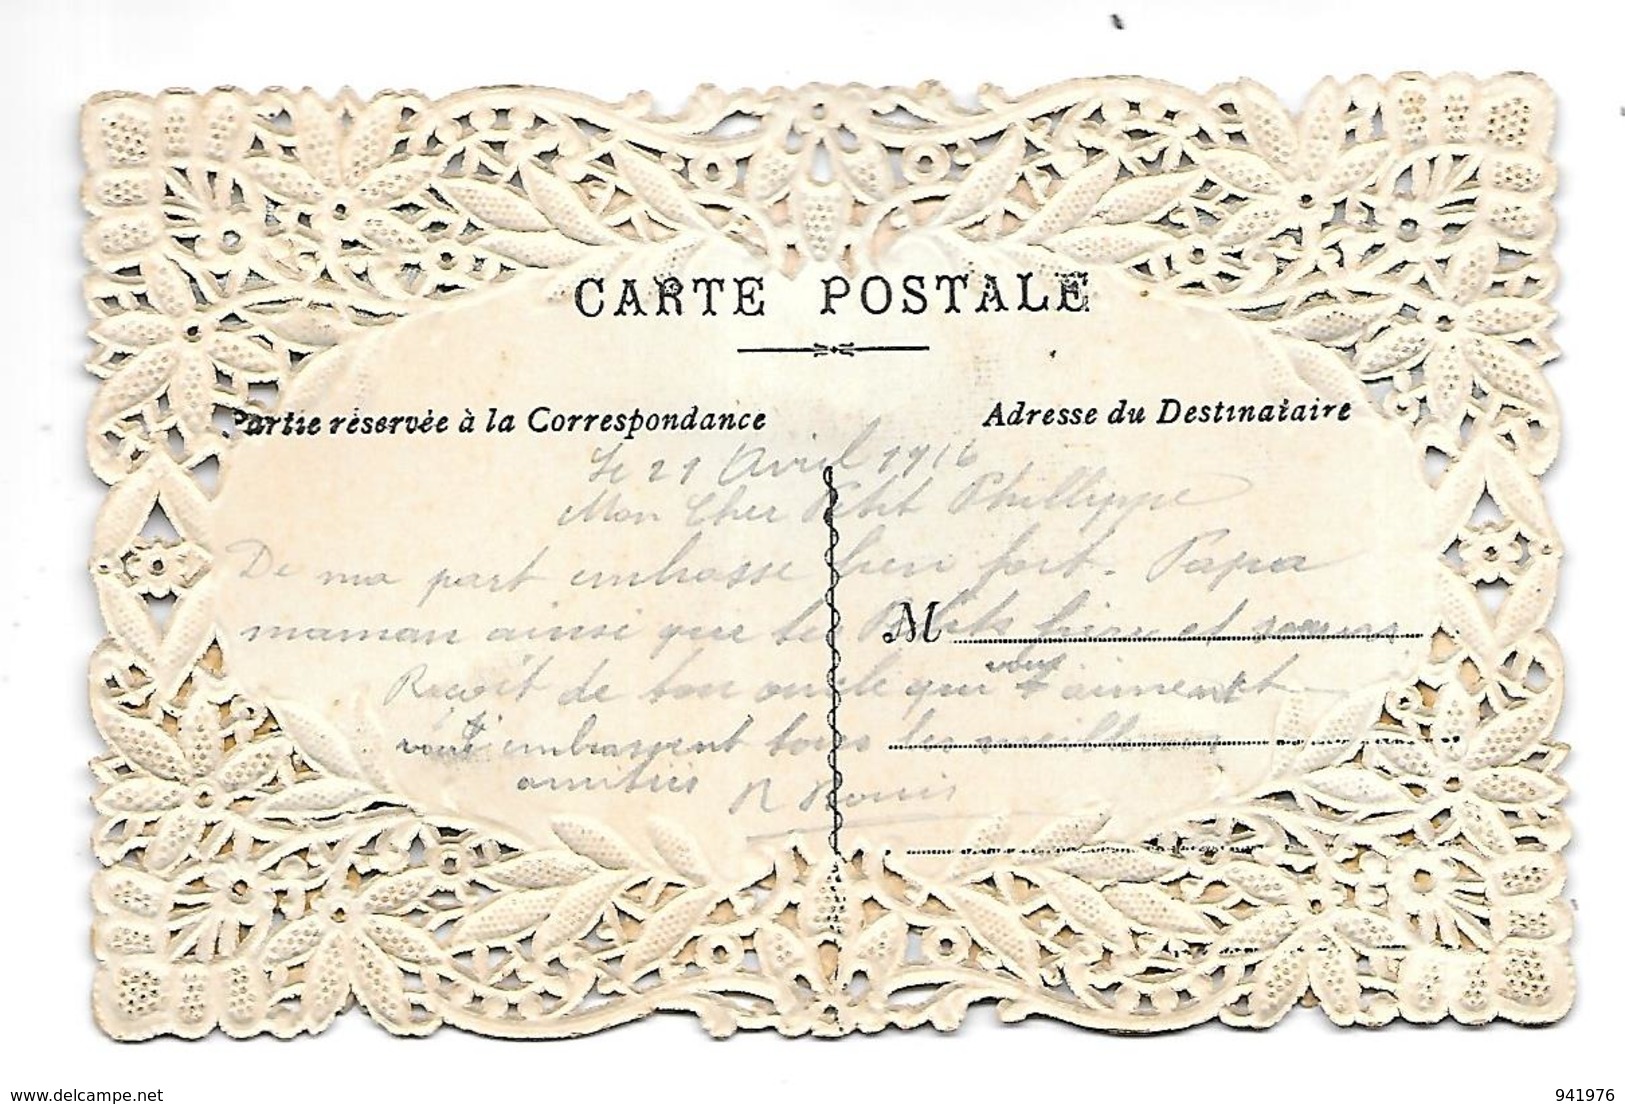 CARTE POSTALE
Partie réservée à la Correspondance
Adresse du Destinataire
Le 21 Avril 1916
Mon Cher Petit Phillippe
De ma part embrasse bien fort. Papa
M
maman ainsi que tes Petits frère et soeurs
vous
Reçoit de ton oncle qui t'aiment
vous embrassent tous les meilleures
amitiés R
delcampe.net
941976